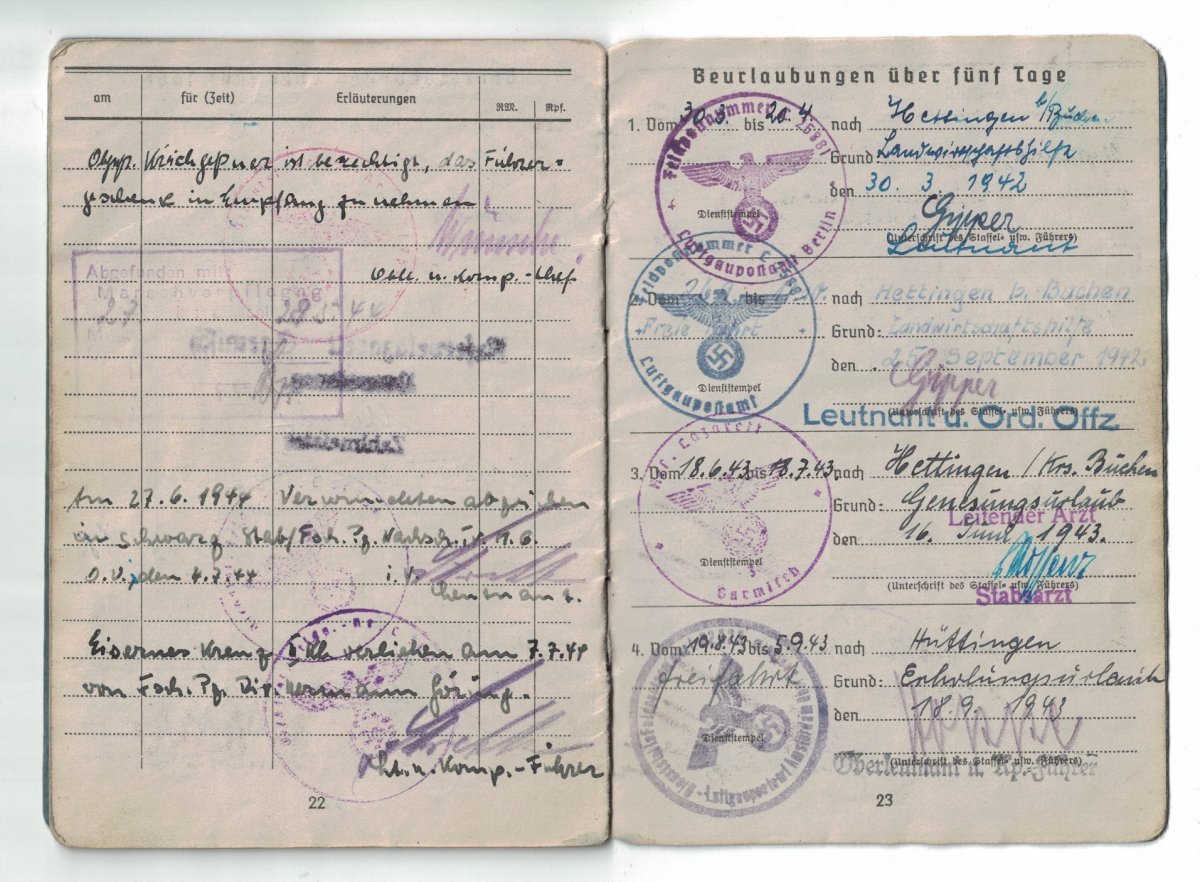 am für (Zeit) Erläuterungen RM. Rpf.
Ogfr. Kirchgeßner ist berechtigt, das Führer=
geschenk in Empfang zu nehmen!
u. Komp.-Chef
Abgefunden mit
Marschverpflegung
27 28 5 44
Am 27.6.1944 Verwundeten abzeichen
in schwarz Stab/Fsch. Pz.
O.U., den 4.7.44 i.V.
Leutnant
Eisernes Kreuz II Kl. verliehen am 7.7.44
von Fsch. Pz. Div. Hermann Göring.
Lt. u. Komp.-Führer
22
Beurlaubungen über fünf Tage
1. Vom 30.3. bis 20.4 nach Hettingen b/Buchen
Grund: Landwirtschaftshilfe
den 30. 3. 1942
Gipper
Dienststempel
(Unterschrift des Staffel- usw. Führers)
Leutnant
Feldpostnummer L 26881
Luftgaupostamt Berlin
2. Vom bis nach Hettingen b. Buchen
Freie Fahrt
Grund: Landwirtschaftshilfe
den 25. September 1942
Gipper
Dienststempel
(Unterschrift des Staffel- usw. Führers)
Leutnant u. Ord. Offz.
Feldpostnummer L
Luftgaupostamt
3. Vom 18.6.43 bis 13.7.43 nach Hettingen / Krs. Buchen
Grund: Genesungsurlaub
Leitender Arzt
den 16. Juni 1943.
Dienststempel
(Unterschrift des Staffel- usw. Führers)
Stabsarzt
Lazarett
Garmisch
4. Vom 19.8.43 bis 5.9.43 nach Hüttingen
freifahrt
Grund: Erholungsurlaub
den 18.9. 1943
Dienststempel
(Unterschrift des Staffel- usw. Führers)
Oberleutnant u. Kp.-Führer
23